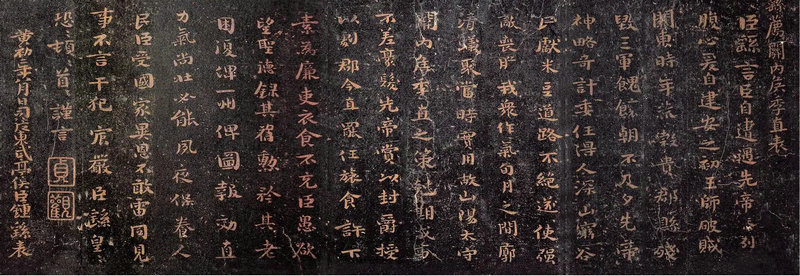 繇薦關內侯季直表
臣繇言臣自遭遇先帝忝列
腹心爰自建安之初王師破賊
關東時年荒穀貴郡縣殘
毀三軍餽饟朝不及夕先帝
神略奇計委任得人深山窮谷
民獻米豆道路不絕遂使強
敵喪膽我眾作氣旬月之間廓
清蟻聚當時實用故山陽太守
關內侯季直之策剋期成事
不差豪髮先帝賞以封爵授
以劇郡今直罷任旅食許下
素為廉吏衣食不充臣愚欲
望聖德錄其舊勳矜其老
困復俾一州俾圖報效直
力氣尚壯必能夙夜保養人
民臣受國家異恩不敢雷同見
事不言干犯宸嚴臣繇皇
恐頓首謹言
貞觀
黃初二年八月日司徒東武亭侯臣鍾繇表